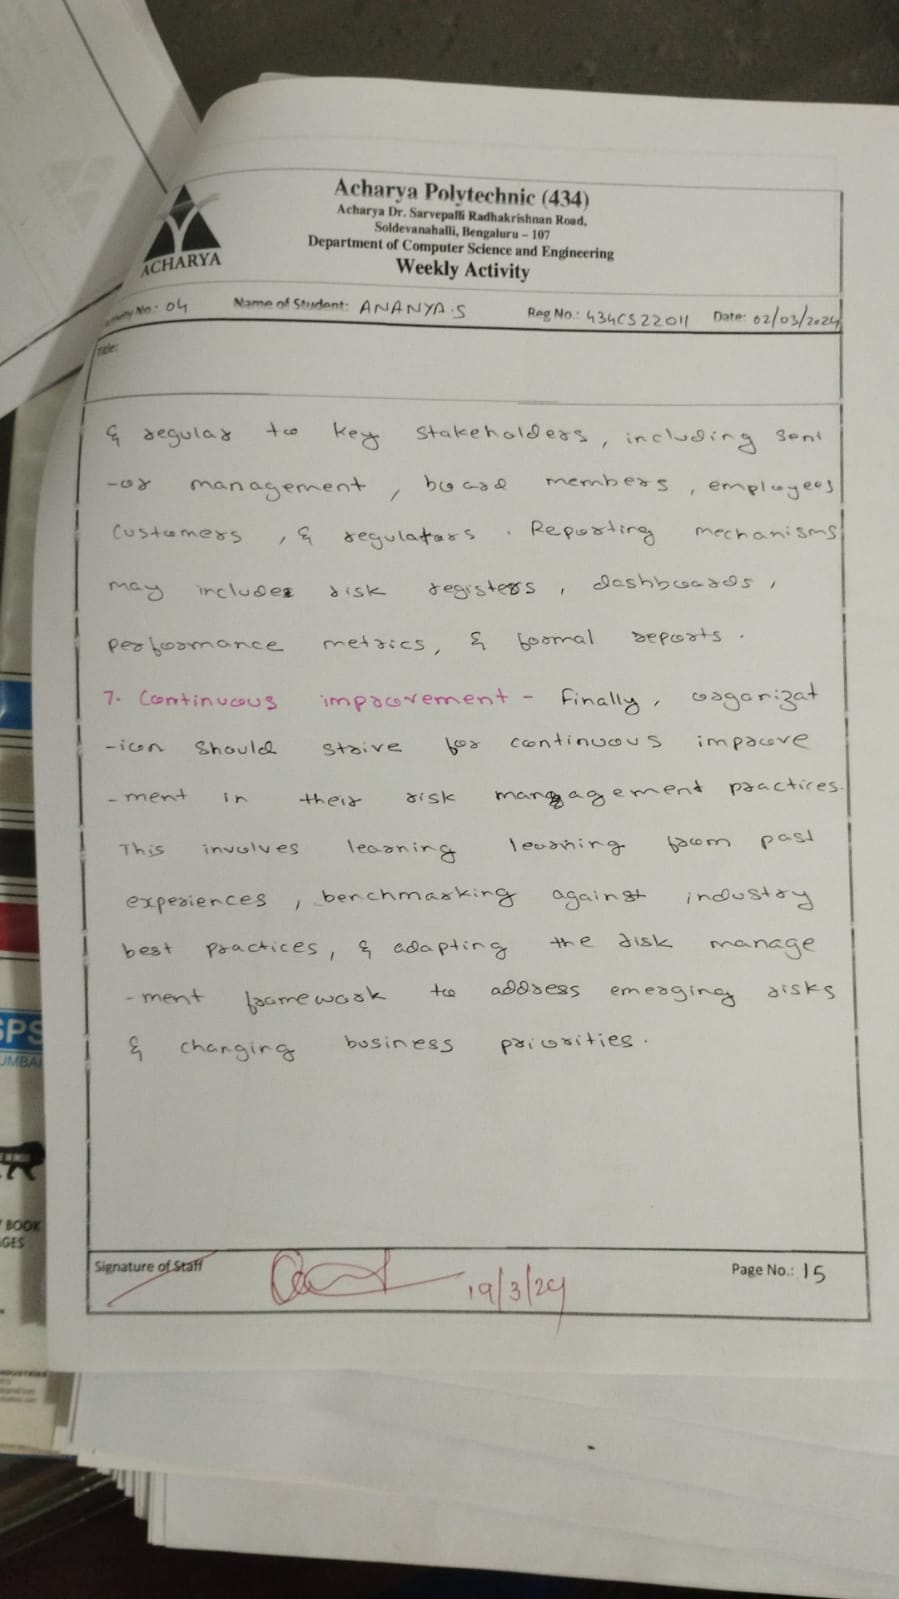 Acharya Polytechnic (434)
Acharya Dr. Sarvepalli Radhakrishnan Road,
Soldevanahalli, Bengaluru – 107
Department of Computer Science and Engineering
Weekly Activity
ACHARYA
Activity No.: 04 Name of Student: ANANYA.S Reg No.: 434CS22011 Date: 02/03/2024
Title:
& regular to key stakeholders, including seni
-or management, board members, employees
customers, & regulators. Reporting mechanisms
may includes risk registers, dashboards,
performance metrics, & formal reports.
7. Continuous improvement - Finally, organizat
-ion should strive for continuous improve
-ment in their risk management practices.
This involves learning learning from past
experiences, benchmarking against industry
best practices, & adapting the risk manage
-ment framework to address emerging risks
& changing business priorities.
Signature of Staff 19/3/24 Page No.: 15
SPS
UMBAI
BOOK
GES